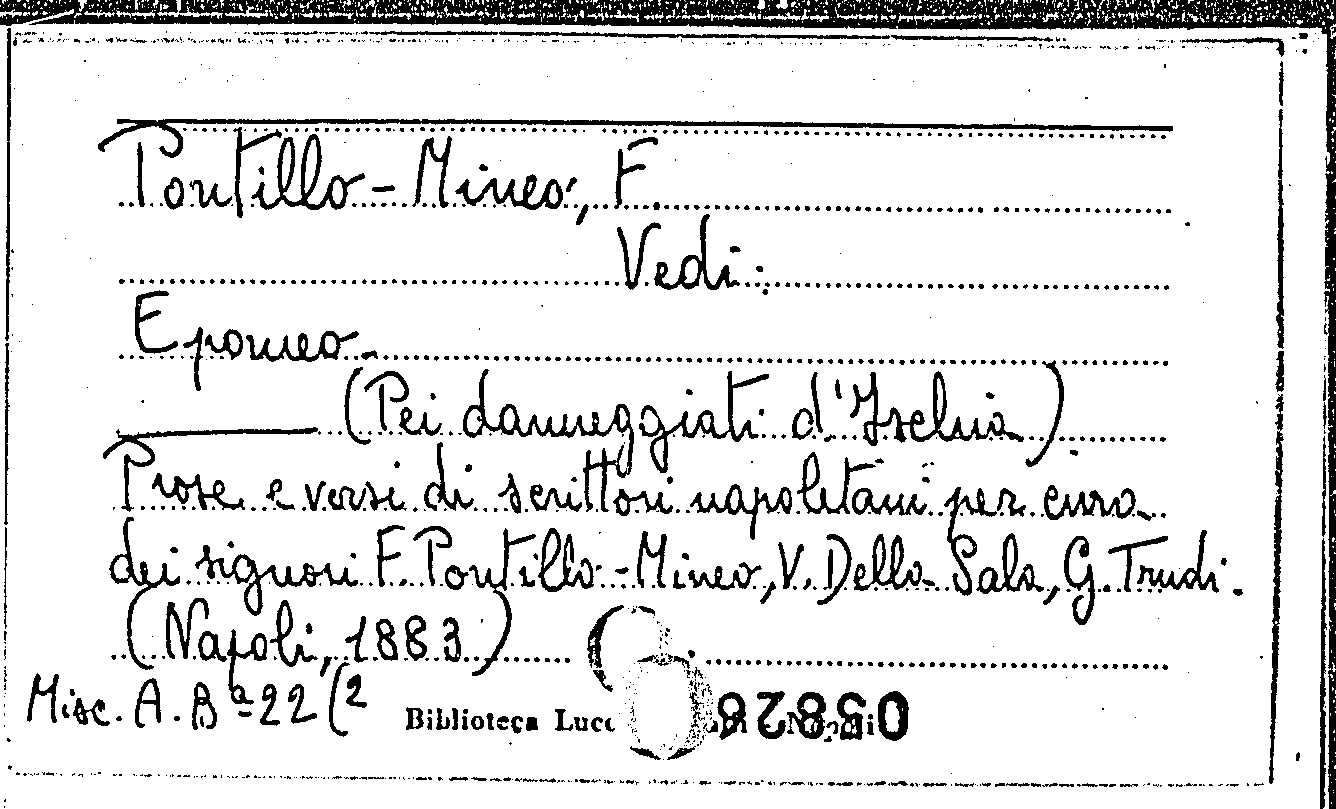 Pontillo-Mineo, F.
Vedi:
Epomeo.
(Pei danneggiati d'Ischia)
Prose e versi di scrittori napoletani per cura
dei signori F. Pontillo-Mineo, V. Della Sala, G. Trudi.
(Napoli, 1883)
Misc. A. Bª 22 (2
Biblioteca Lucc